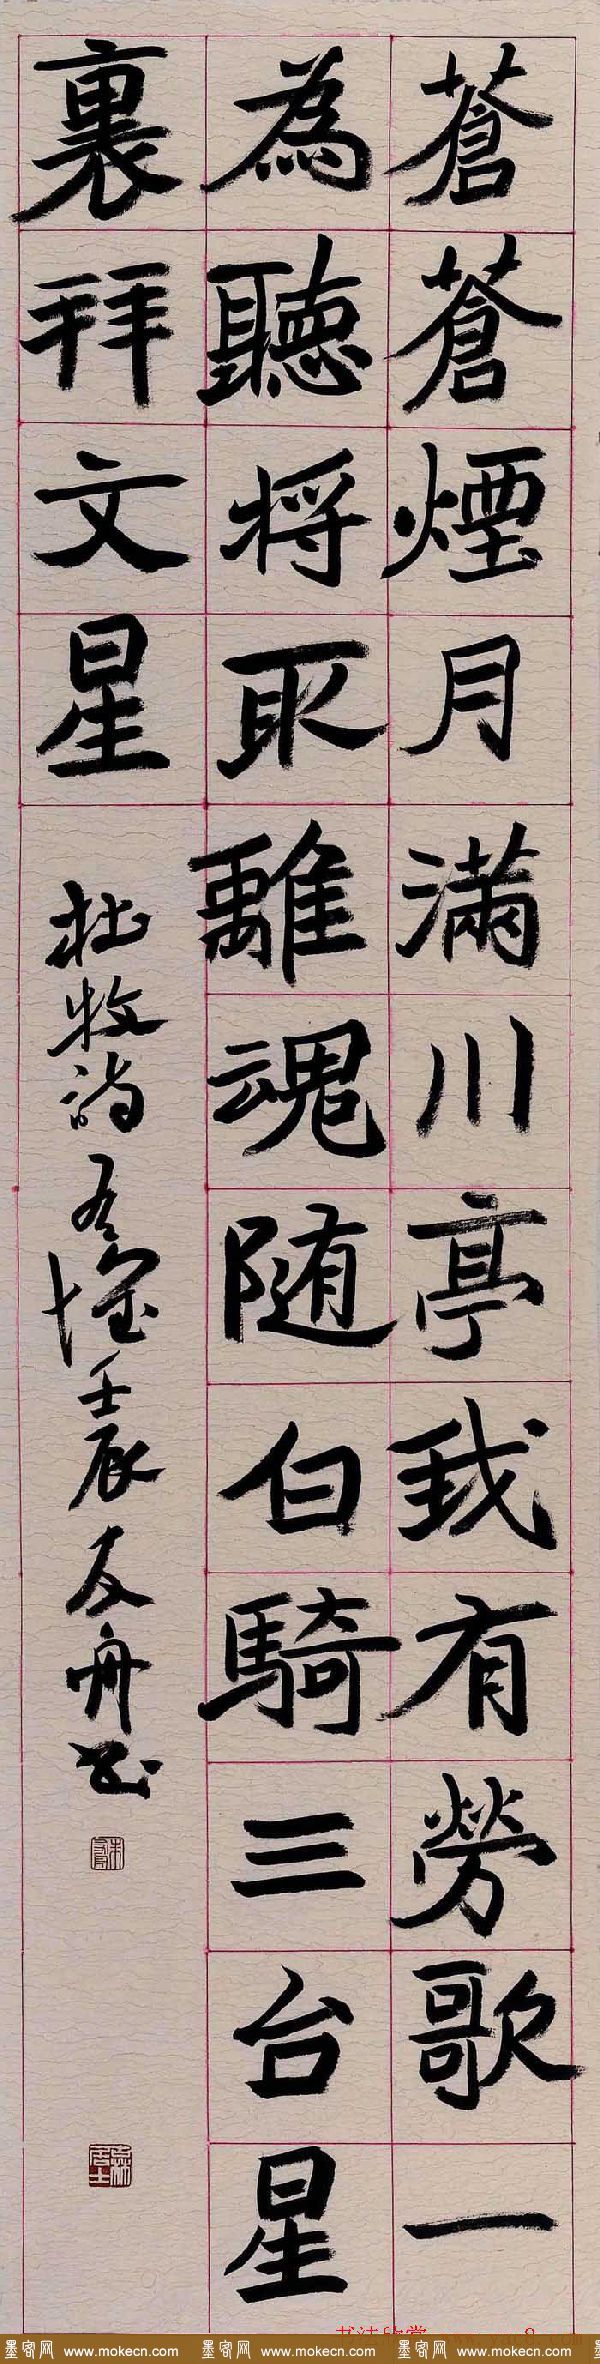 蒼蒼煙月滿川亭我有勞歌一
為聽将取離魂随白騎三台星
裏拜文星
杜牧詩 壬辰 友舟书
墨客网 www.mokecn.com 墨客网 www.mokecn.com 墨客网 www.mokecn.com